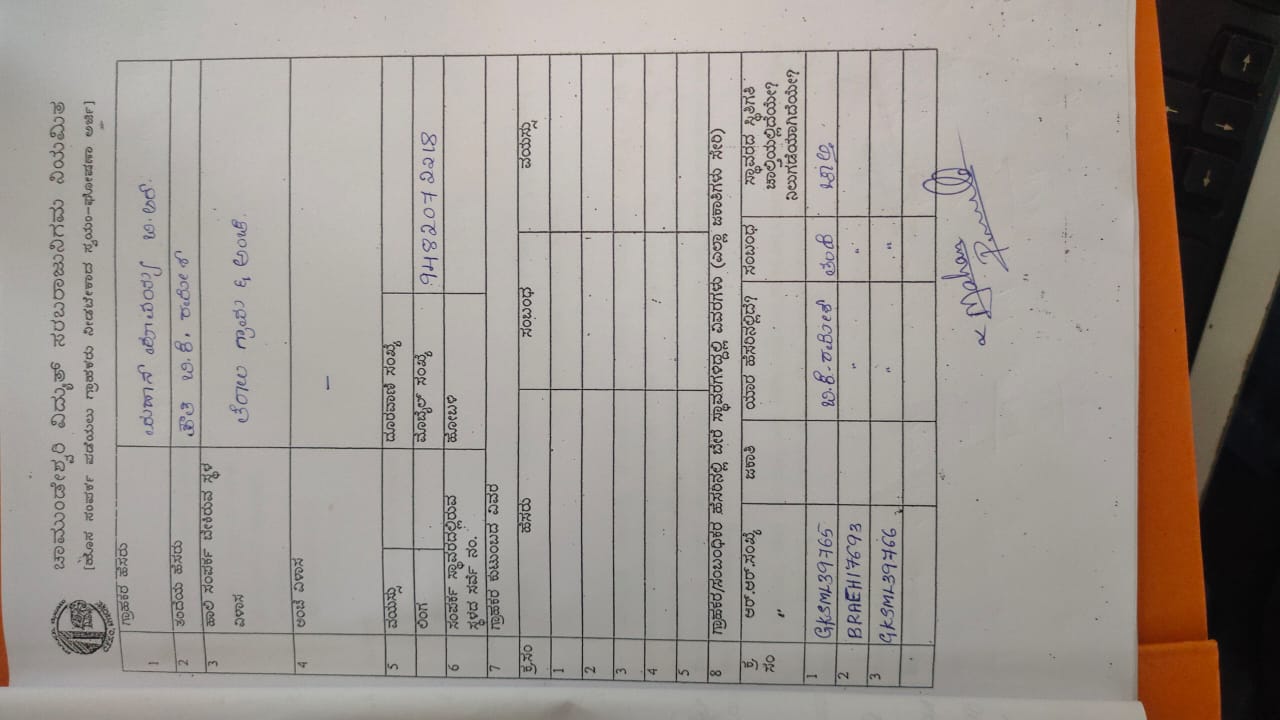 ಚಾಮುಂಡೇಶ್ವರಿ ವಿದ್ಯುತ್ ಸರಬರಾಜು ನಿಗಮ ನಿಯಮಿತ
[ಹೊಸ ಸಂಪರ್ಕ ಪಡೆಯಲು ಗ್ರಾಹಕರು ನೀಡಬೇಕಾದ ಸ್ವಯಂ-ಘೋಷಣಾ ಅರ್ಜಿ]
1 ಗ್ರಾಹಕರ ಹೆಸರು ಬಿ.ಆರ್.
2 ತಂದೆಯ ಹೆಸರು ಬಿ.ಕೆ.
3 ಹಾಲಿ ಸಂಪರ್ಕ ಬೇಕಿರುವ ಸ್ಥಳ
ವಿಳಾಸ ಗ್ರಾಮ & ಅಂಚೆ.
4 ಅಂಚೆ ವಿಳಾಸ –
5 ವಯಸ್ಸು ದೂರವಾಣಿ ಸಂಖ್ಯೆ
ಲಿಂಗ ಮೊಬೈಲ್ ಸಂಖ್ಯೆ 9482072218
6 ಸಂಪರ್ಕ ಸ್ಥಾವರದಲ್ಲಿರುವ ಹೋಬಳಿ
ಸ್ಥಳದ ಸರ್ವೆ ನಂ.
7 ಗ್ರಾಹಕರ ಕುಟುಂಬದ ವಿವರ
ಕ್ರ.ಸಂ ಹೆಸರು ಸಂಬಂಧ ವಯಸ್ಸು
1
2
3
4
5
8 ಗ್ರಾಹಕರ/ಸಂಬಂಧಿಕರ ಹೆಸರಿನಲ್ಲಿ ಬೇರೆ ಸ್ಥಾವರಗಳಿದ್ದಲ್ಲಿ ವಿವರಗಳು (ಎಲ್ಲಾ ಜಕಾತಿಗಳು ಸೇರಿ)
ಕ್ರ ಸಂ ಆರ್.ಆರ್.ಸಂಖ್ಯೆ ಜಕಾತಿ ಯಾರ ಹೆಸರಿನಲ್ಲಿದೆ? ಸಂಬಂಧ ಸ್ಥಾವರದ ಸ್ಥಿತಿಗತಿ
ಚಾಲ್ತಿಯಲ್ಲಿದೆಯೇ?
ನಿಲುಗಡೆಯಾಗಿದೆಯೇ?
1 GKSML39765 ಬಿ.ಕೆ. ತಂದೆ ಚಾಲ್ತಿ
2 BRAEH17693 " "
3 GKSML39766 " "